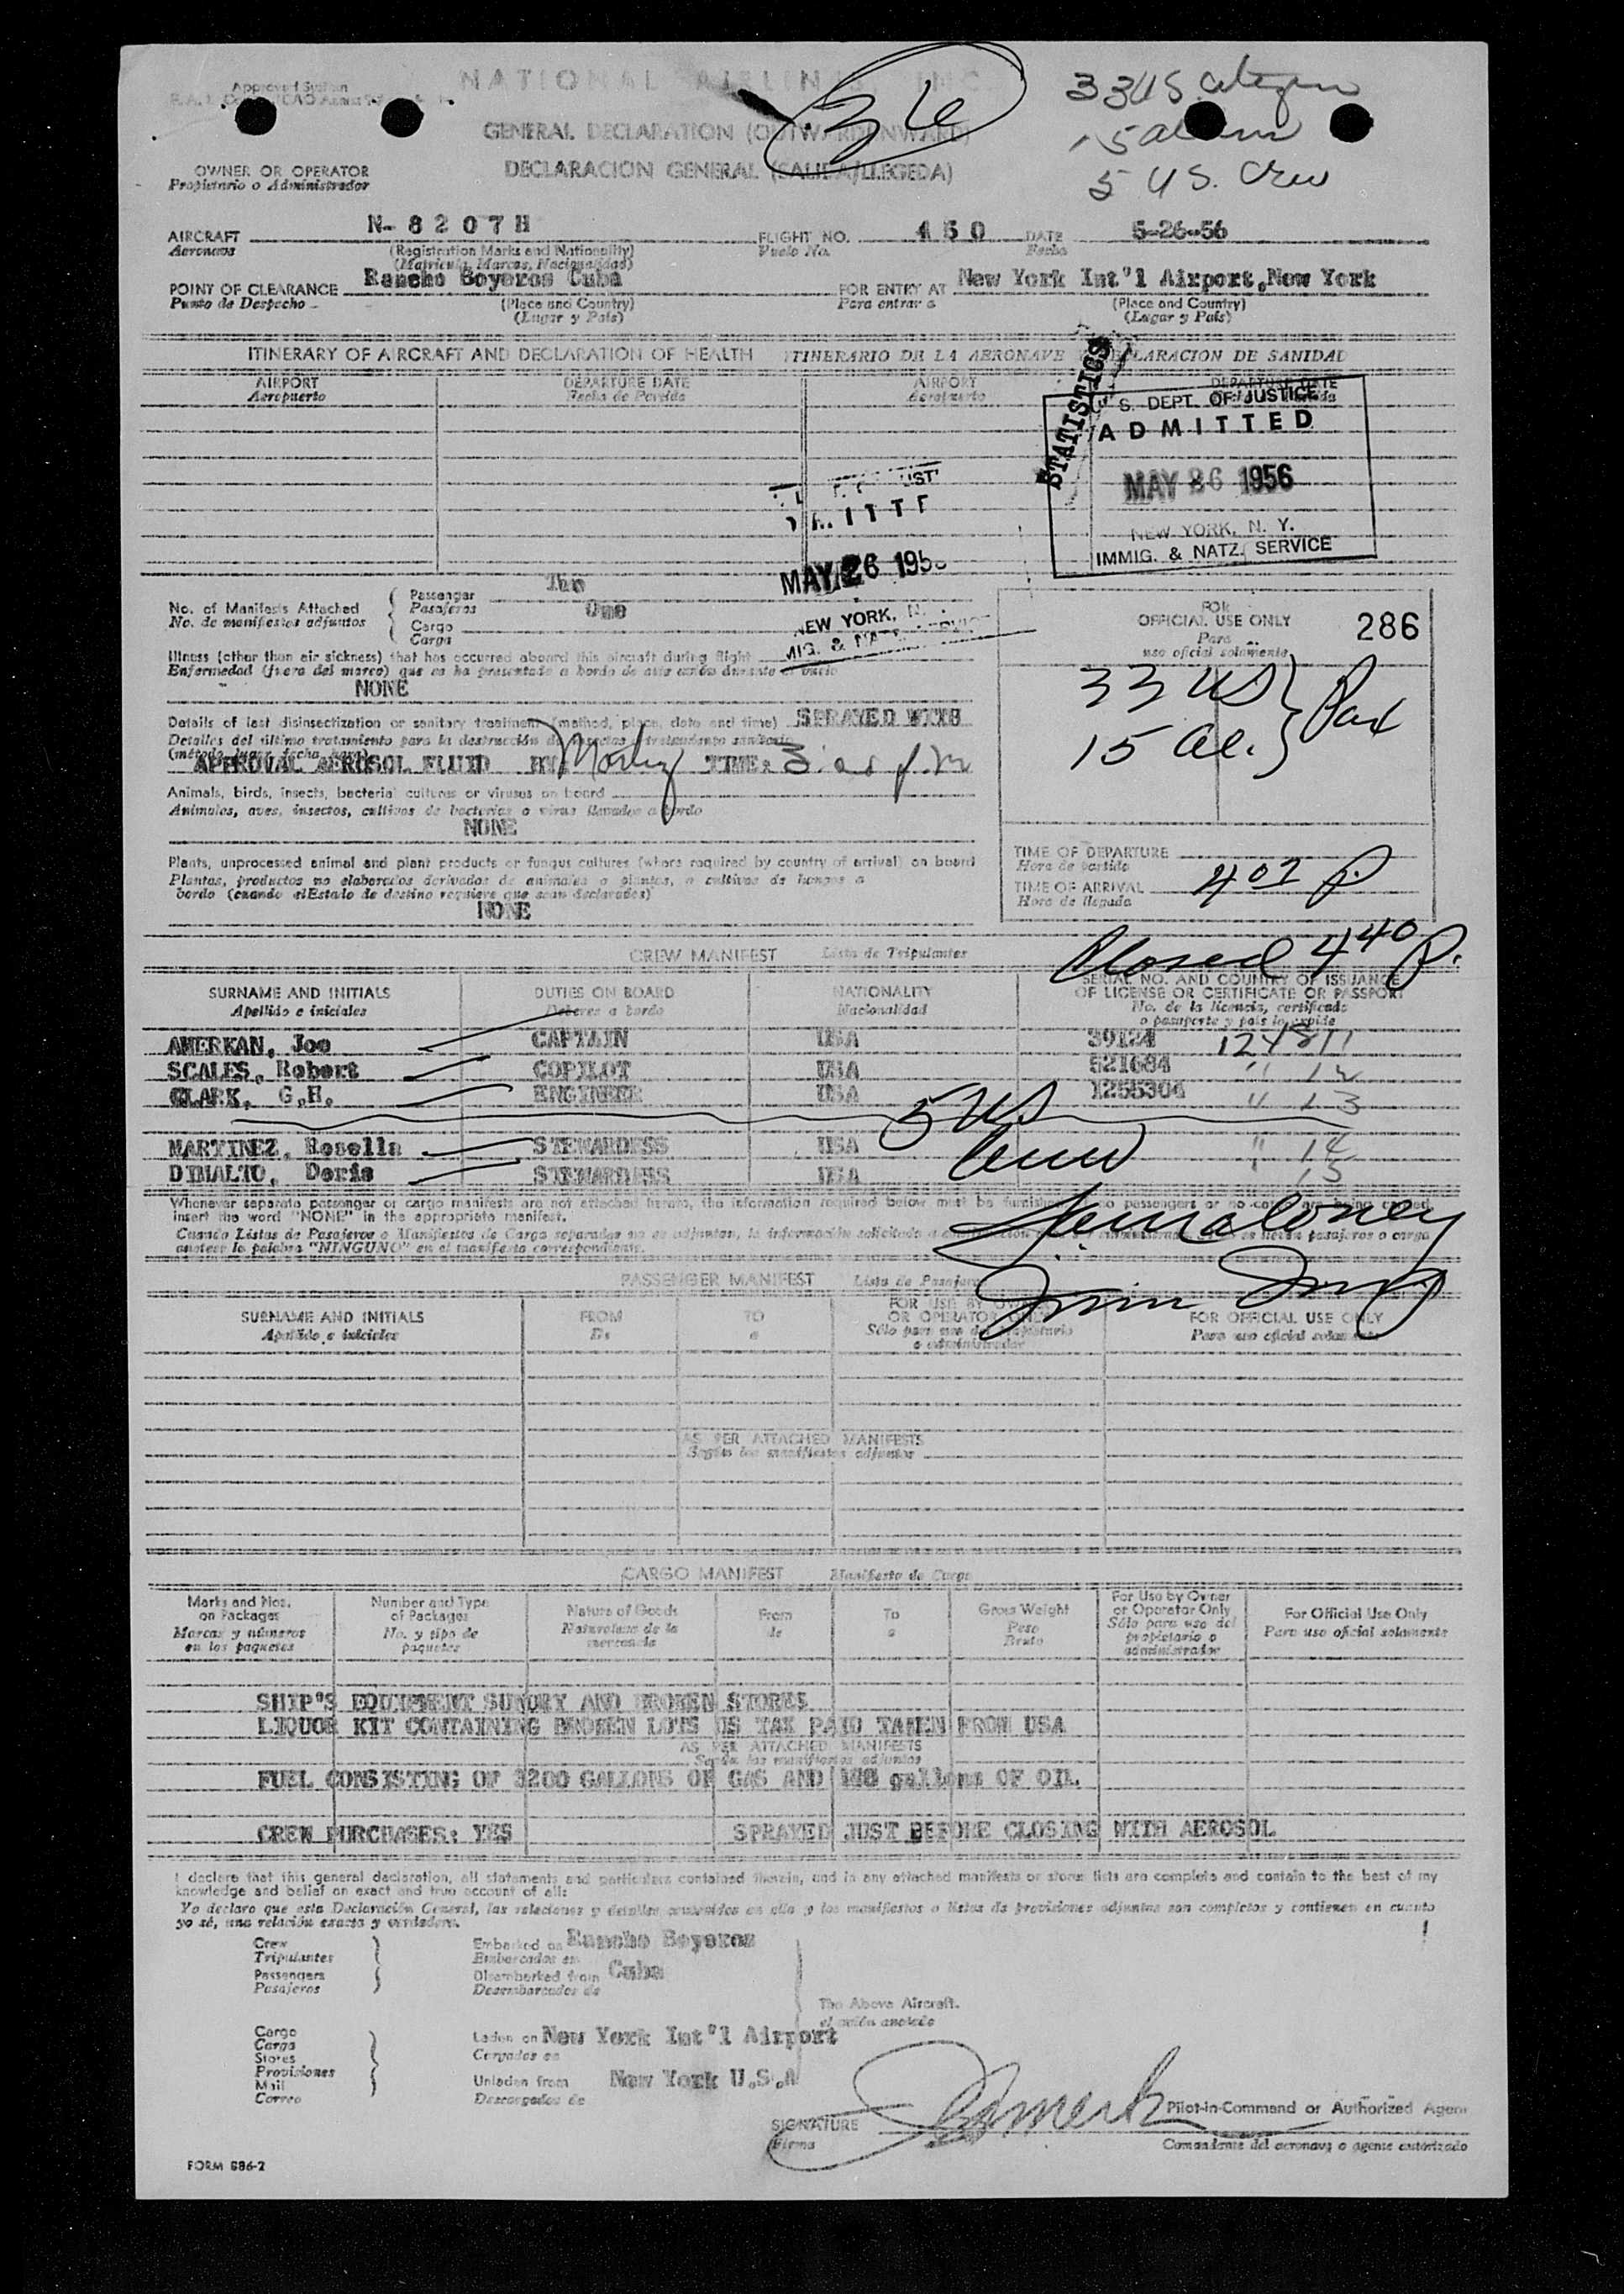 NATIONAL AIRLINES INC
36
33 US Citizen
15 alien
5 US. Crew
GENERAL DECLARATION (OUTWARD/INWARD)
DECLARACION GENERAL (SALIDA/LLEGEDA)
OWNER OR OPERATOR
Propietario o Administrador
AIRCRAFT N- 8 2 0 7 H FLIGHT NO. 4 5 0 DATE 5-26-56
Aeronave (Registration Marks and Nationality) Vuelo No. Fecha
(Matricula, Marcas, Nacionalidad)
POINT OF CLEARANCE Rancho Boyeros Cuba FOR ENTRY AT New York Int'l Airport,New York
Punto de Despecho (Place and Country) Para entrar a (Place and Country)
(Lugar y País) (Lugar y País)
ITINERARY OF AIRCRAFT AND DECLARATION OF HEALTH ITINERARIO DE LA AERONAVE DECLARACION DE SANIDAD
AIRPORT DEPARTURE DATE AIRPORT DEPARTURE DATE
Aeropuerto Fecha de Partida Aeropuerto
STATISTICS
U. S. DEPT. OF JUSTICE
ADMITTED
MAY 26 1956
NEW YORK, N. Y.
IMMIG. & NATZ. SERVICE
MAY 26 195
NEW YORK, N.
No. of Manifests Attached Passenger Two
No. de manifiestos adjuntos Pasajeros
Cargo One
Carga
FOR
OFFICIAL USE ONLY 286
Para
uso oficial solamente
33 US
15 al. Pax
Illness (other than air sickness) that has occurred aboard this aircraft during flight
Enfermedad (fuera del mareo) que se ha presentado a bordo de este avión durante el vuelo
NONE
Details of last disinsectization or sanitary treatment (method, place, date and time) SPRAYED WITH
Detalles del último tratamiento para la destrucción de insectos o tratamiento sanitario
(método, lugar, fecha, hora)
APPROVAL AEROSOL FLUID BY TIME:
Animals, birds, insects, bacterial cultures or viruses on board
Animales, aves, insectos, cultivos de bacterias o virus llevados a bordo
NONE
Plants, unprocessed animal and plant products or fungus cultures (where required by country of arrival) on board
Plantas, productos no elaborados derivados de animales o plantas, o cultivos de hongos a
bordo (cuando el Estado de destino requiere que sean declarados)
NONE
TIME OF DEPARTURE
Hora de partida
TIME OF ARRIVAL 4 02 P.
Hora de llegada
Closed 4 40 P.
CREW MANIFEST Lista de Tripulantes
SURNAME AND INITIALS DUTIES ON BOARD NATIONALITY SERIAL NO. AND COUNTRY OF ISSUANCE
OF LICENSE OR CERTIFICATE OR PASSPORT
Apellido e iniciales Deberes a bordo Nacionalidad No. de la licencia, certificado
o pasaporte y país lo expide
AMERKAN, Joe CAPTAIN USA 39124 124811
SCALES, Robert COPILOT USA 521684 " 12
CLARK, G.H. ENGINEER USA 1255304 " 13
5 US
Crew
MARTINEZ, Rosella STEWARDESS USA " 14
DIMALIO, Doris STEWARDESS USA 15
Whenever separate passenger or cargo manifests are not attached hereto, the information required below must be furnished.
insert the word "NONE" in the appropriate manifest.
Cuando Listas de Pasajeros o Manifiestos de Carga separados no se adjuntan, la información solicitada a
anotese la palabra "NINGUNO" en el manifiesto correspondiente.
PASSENGER MANIFEST Lista de Pasajeros
SURNAME AND INITIALS FROM TO FOR USE BY OWNER OR OPERATOR ONLY FOR OFFICIAL USE ONLY
Apellido e iniciales De a Sólo para uso del propietario o administrador Para uso oficial solamente
AS PER ATTACHED MANIFESTS
Según los manifiestos adjuntos
CARGO MANIFEST Manifiesto de Carga
Marks and Nos. on Packages Number and Type of Packages Nature of Goods From To Gross Weight For Use by Owner or Operator Only For Official Use Only
Marcas y números en los paquetes No. y tipo de paquetes Naturaleza de la mercancía de a Peso Bruto Sólo para uso del propietario o administrador Para uso oficial solamente
SHIP'S EQUIPMENT SUNDRY AND BROKEN STORES
LIQUOR KIT CONTAINING BROKEN LOTS US TAX PAID TAKEN FROM USA
AS PER ATTACHED MANIFESTS
Según los manifiestos adjuntos
FUEL CONSISTING OF 3200 GALLONS OF GAS AND gallons OF OIL.
CREW PURCHASES: YES SPRAYED JUST BEFORE CLOSING WITH AEROSOL
I declare that this general declaration, all statements and particulars contained therein, and in any attached manifests or stores lists are complete and contain to the best of my
knowledge and belief an exact and true account of all:
Yo declaro que esta Declaración General, las relaciones y detalles contenidos en ella y los manifiestos o listas de provisiones adjuntas son completos y contienen en cuanto
yo sé, una relación exacta y verdadera.
Crew Embarked on Rancho Boyeros
Tripulantes Embarcados en
Passengers Disembarked from Cuba
Pasajeros Desembarcados de
The Above Aircraft.
el avión anotado
Cargo Laden on New York Int'l Airport
Carga Cargados en
Stores
Provisiones Unladen from New York U.S.A
Mail
Correo Descargados de
SIGNATURE Pilot-in-Command or Authorized Agent
Firma Comandante del aeronave o agente autorizado
FORM 886-2